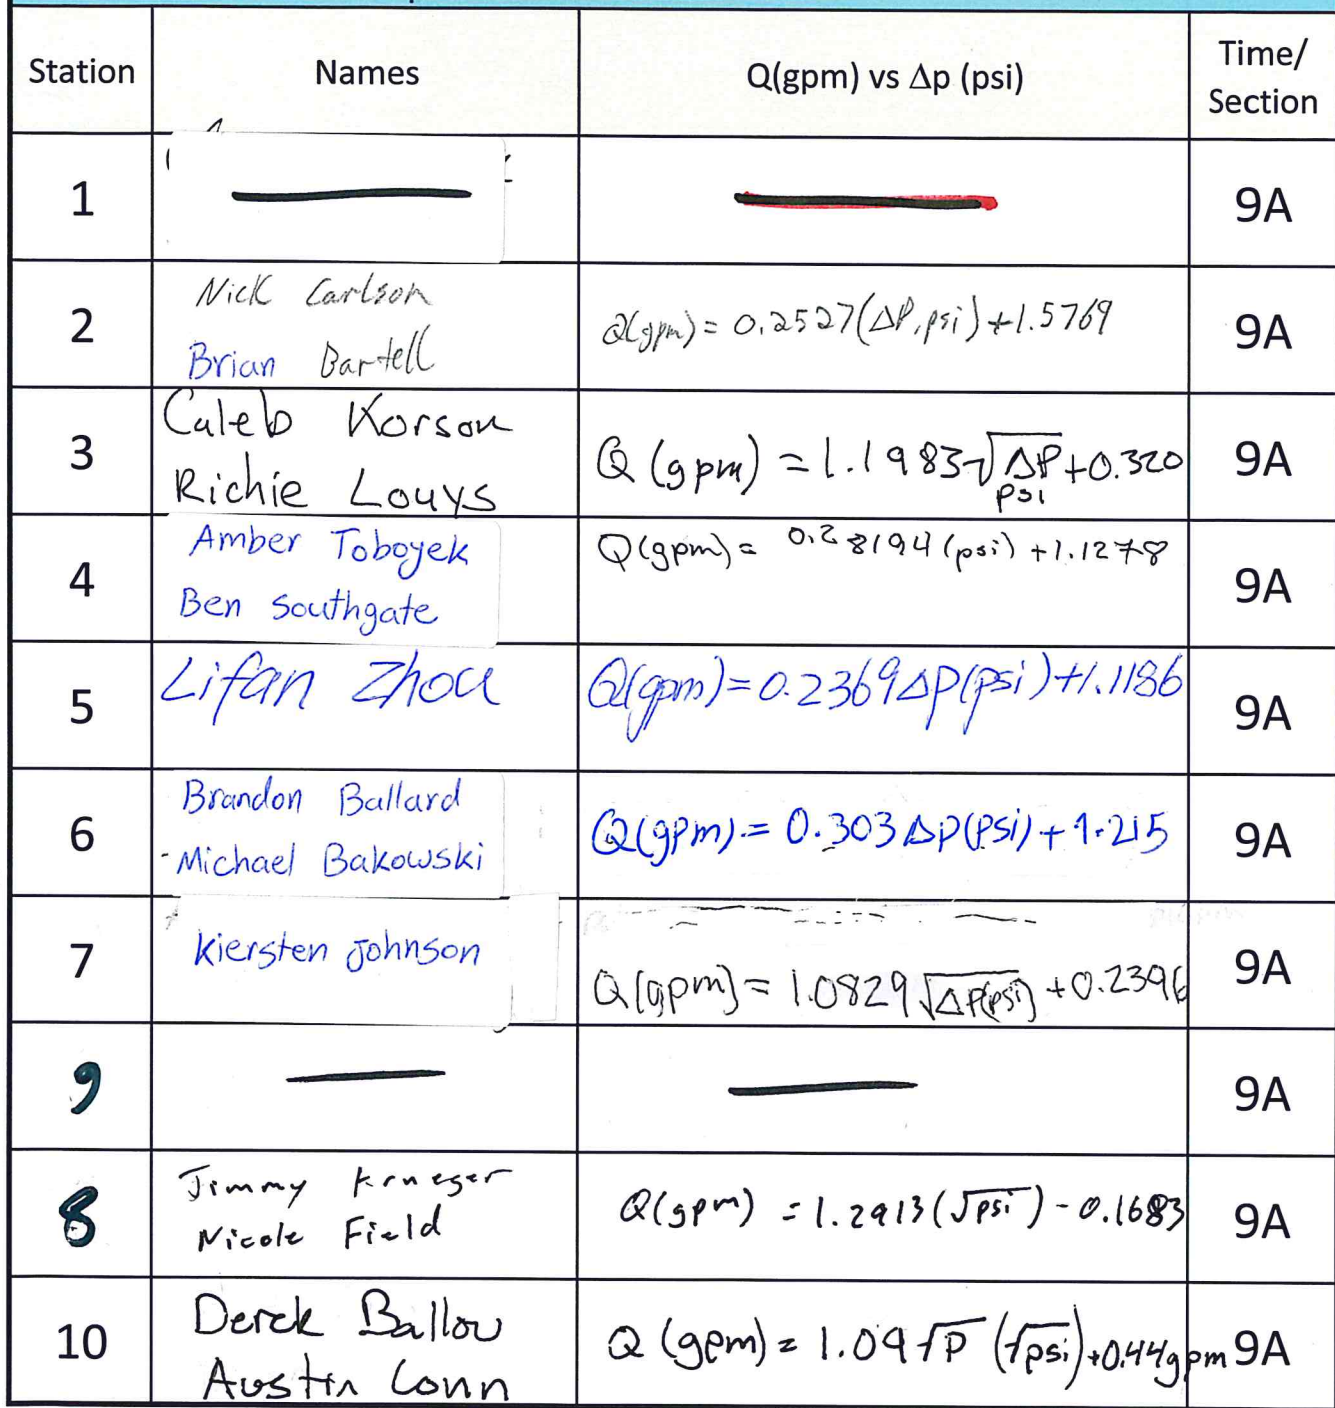 Station Names Q(gpm) vs Δp (psi) Time/
Section
1 9A
2 Nick Carlson
Brian Bartell Q(gpm) = 0.2527(ΔP, psi) + 1.5769 9A
3 Caleb Korson
Richie Louys Q (gpm) = 1.1983√ΔP + 0.320
psi 9A
4 Amber Toboyek
Ben Southgate Q(gpm) = 0.28194 (psi) + 1.1278 9A
5 Lifan Zhou Q(gpm) = 0.2369 ΔP(psi) + 1.1186 9A
6 Brandon Ballard
Michael Bakowski Q(gpm) = 0.303 ΔP(psi) + 1.215 9A
7 Kiersten Johnson Q(gpm) = 1.0829 √ΔP(psi) + 0.2396 9A
9 9A
8 Jimmy Krueger
Nicole Field Q(gpm) = 1.2913(√psi) - 0.1683 9A
10 Derek Ballou
Austin Conn Q (gpm) = 1.09√P (√psi) + 0.44gpm 9A